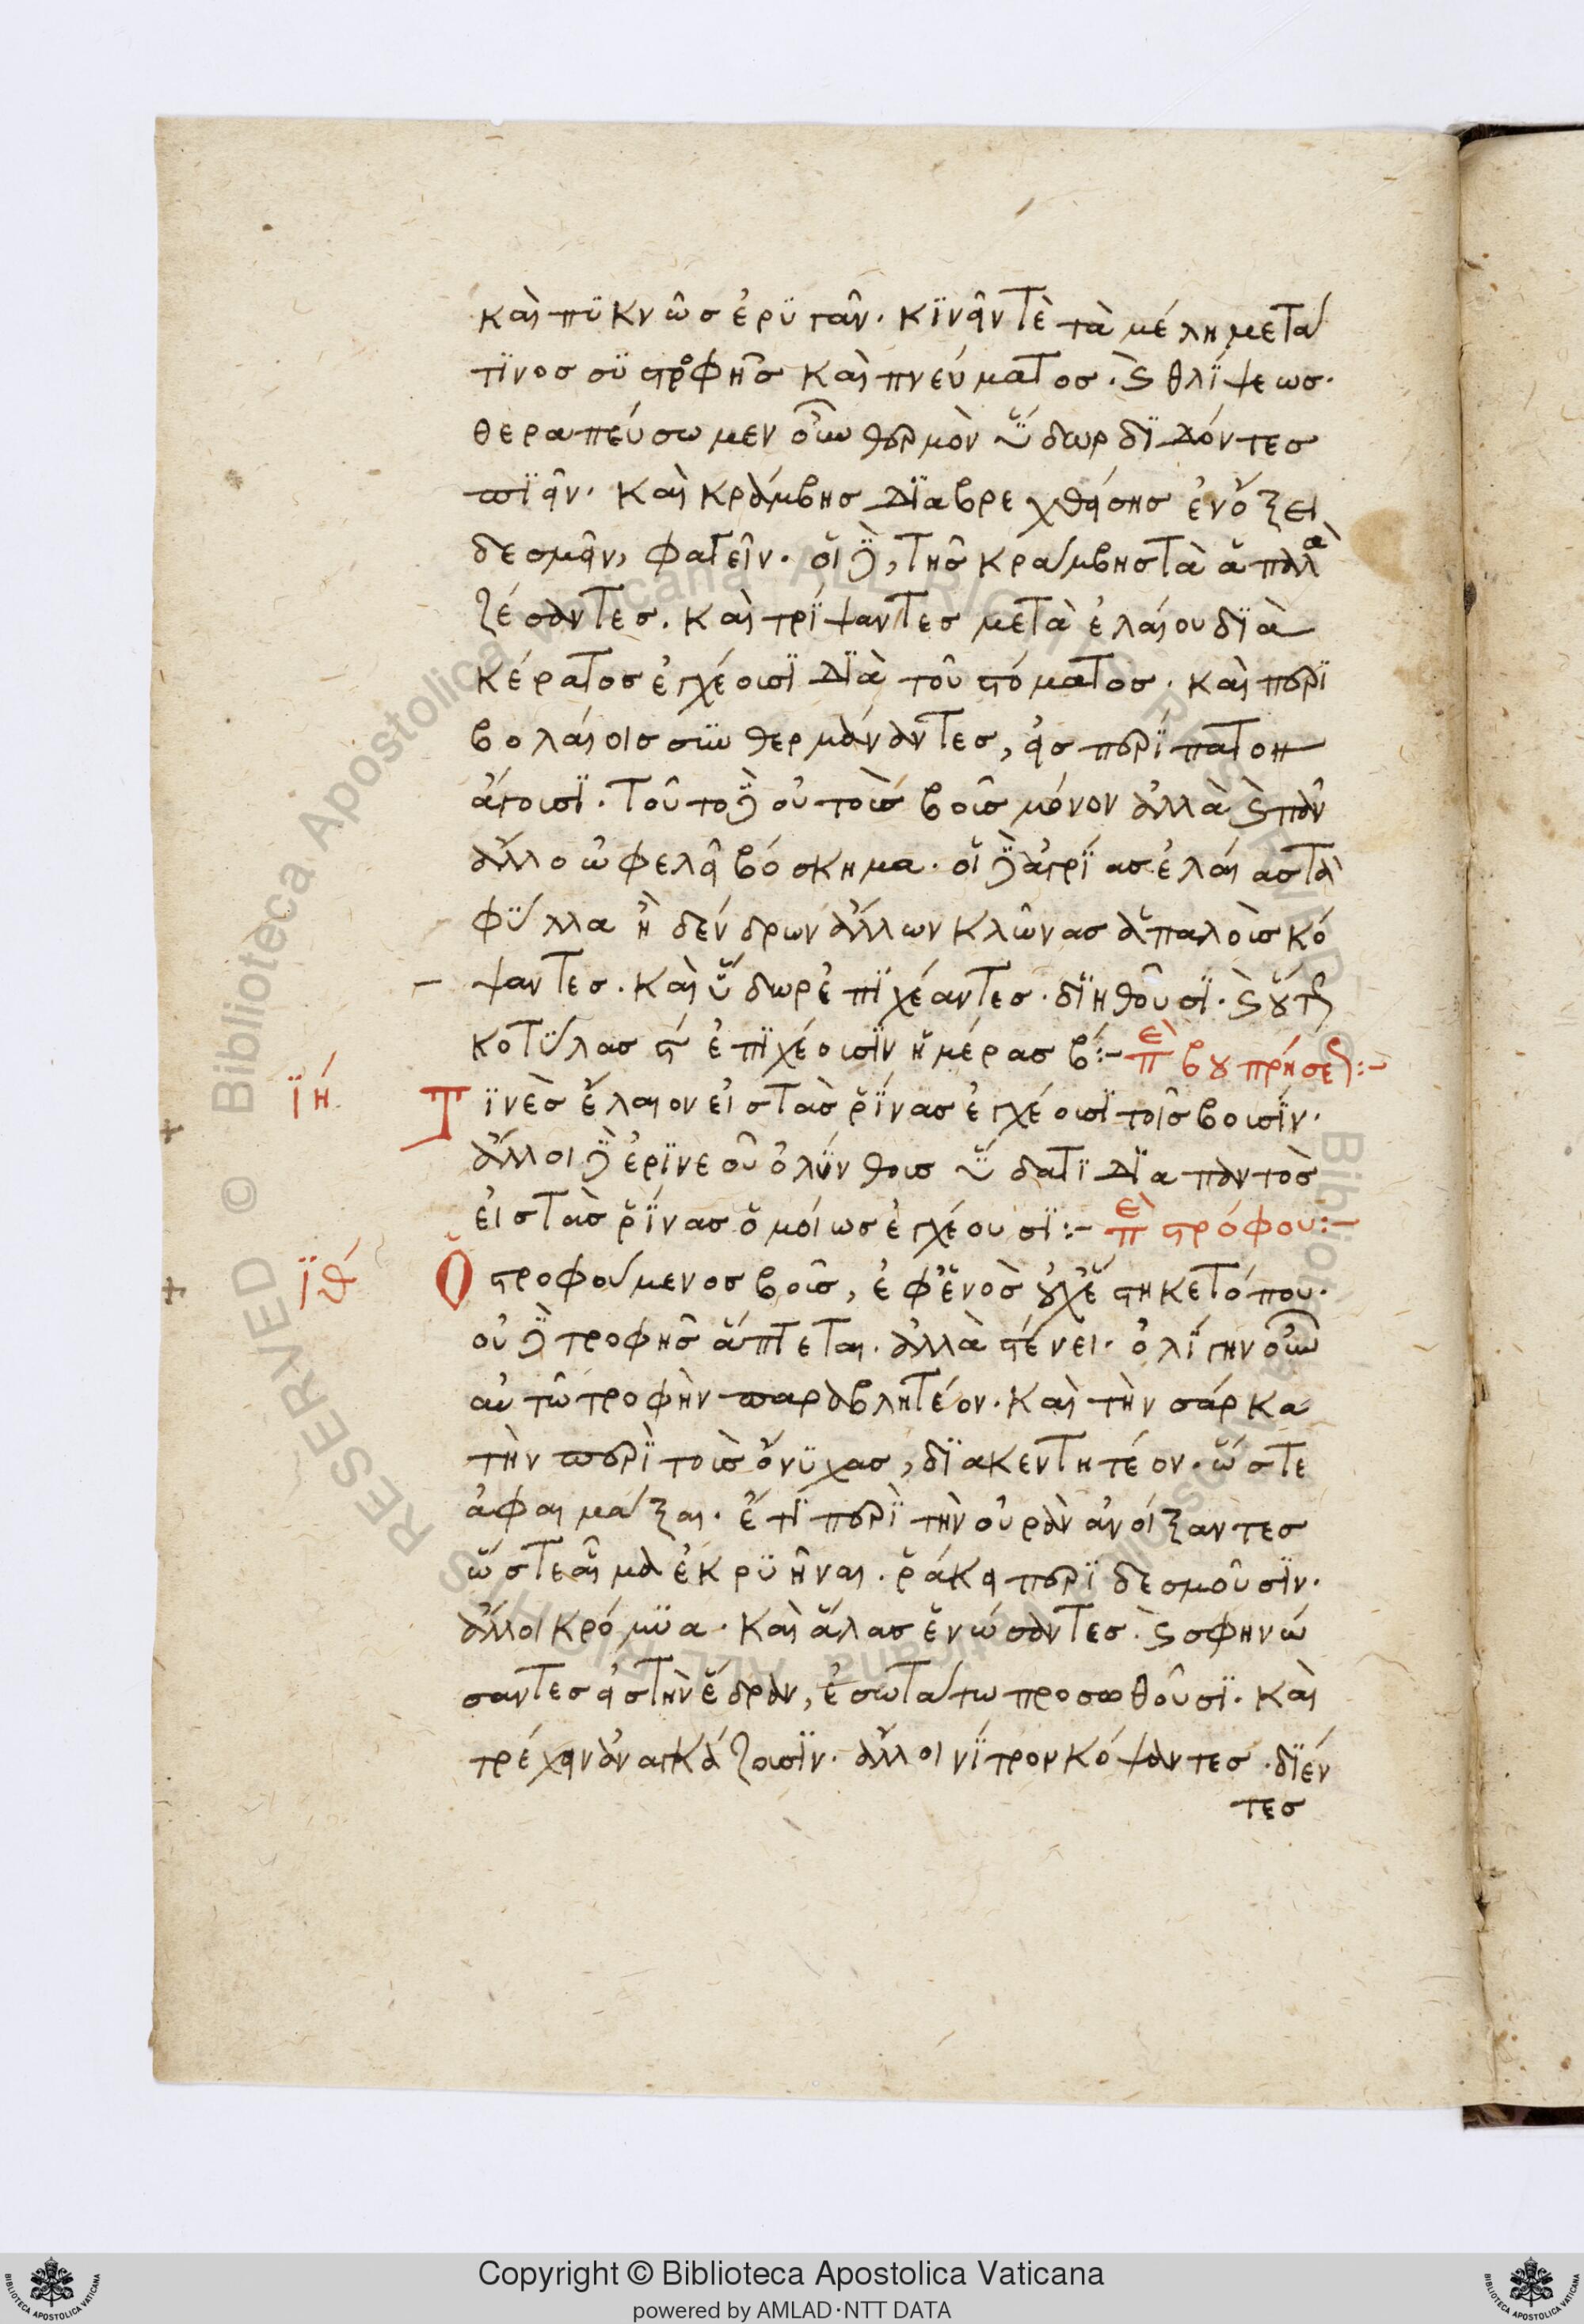 καὶ πϋκνῶσ ἐρϋγᾶν. κϊνεῖν τὲ τὰ μέλη μετά
τϊνοσ σϋστροφῆσ καὶ πνεύματοσ. καὶ θλΐψεωσ.
θεραπεύσωμεν οὖν θερμὸν ὕδωρ δϊδόντεσ
πϊεῖν. καὶ κράμβησ διαβρεχθείσησ ἐν ὄξει
δεσμεῖν, φαγεῖν. οἱ δὲ, τῆσ κράμβησ τὰ ἁπαλὰ
ζέσαντεσ. καὶ τρΐψαντεσ μετὰ ἐλαίου δϊὰ
κέρατοσ ἐγχέουσϊ δϊὰ τοῦ στόματοσ. καὶ περϊ
βολαίοισ συν θερμάναντεσ, εἰσ περΐπατον
ἄγουσϊ. τοῦτο δὲ οὐ τοὺσ βοῦσ μόνον ἀλλὰ καὶ πᾶν
ἄλλο ὠφελεῖ βόσκημα. οἱ δὲ ἀγρΐασ ἐλαίασ τὰ
φΰλλα ἢ δένδρων ἄλλων κλῶνασ ἁπαλοὺσ κό
ψαντεσ. καὶ ὕδωρ ἐπϊχέαντεσ. δϊηθοῦσϊ. καὶ οὕτω
κοτΰλασ ϛ́ ἐπϊχέουσϊν ἡμέρασ β́:- περὶ βουπρήσεωσ:-
ϊή
Τϊνὲσ ἔλαιον εἰσ τὰσ ῥΐνασ ἐγχέουσϊ τοῖσ βουσΐν.
ἄλλοι δὲ ἐρϊνεοῦ ὀλΰνθουσ ὕδατϊ δϊαπαντὸσ
εἰσ τὰσ ῥΐνασ ὁμοίωσ ἐγχέουσϊ:- περὶ στρόφου:-
ϊθ́
Ὁ στροφούμενοσ βοῦσ, ἐφ' ἑνὸσ οὐχ ἕστηκε τόπου.
οὐ δὲ τροφῆσ ἅπτεται. ἀλλὰ στένει. ὀλΐγην οὖν
αὐτῶ τροφὴν παραβλητέον. καὶ τὴν σάρκα
τὴν περὶ τοὺσ ὄνϋχασ, δϊακεντητέον. ὥστε
ἀφαιμάξαι. ἔτϊ περὶ τὴν οὐρὰν ἀνοίξαντεσ
ὥστε αἷμα ἐκρϋῆναι. ῥάκει περϊδεσμοῦσϊν.
ἄλλοι κρόμϋα. καὶ ἅλασ ἑνώσαντεσ. καὶ σφηνώ
σαντεσ εἰσ τὴν ἕδραν, ἐσωτάτω προσωθοῦσϊ. καὶ
τρέχειν ἀναγκάζουσϊν. ἄλλοι νΐτρον κόψαντεσ. δϊέν
τεσ